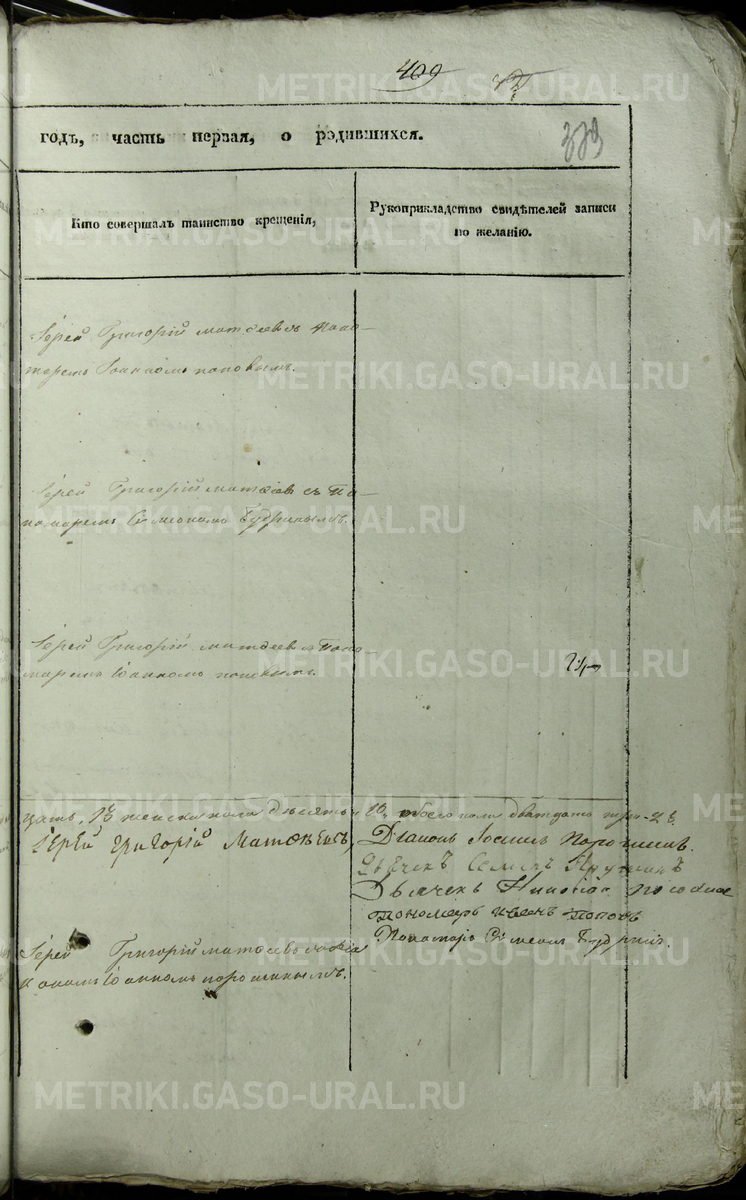 409
годъ, часть первая, о родившихся.
Кто совершалъ таинство крещенія,
Рукоприкладство свидѣтелей записи
по желанію.
Іерей Григорій Матѳеевъ съ Поно-
маремъ Іоанномъ Поповымъ.
Іерей Григорій Матѳеевъ съ По-
номаремъ Симеономъ Будринымъ.
Іерей Григорій Матѳеевъ съ Поно-
маремъ Іоанномъ Поповымъ.
цать, женска пола десять 10, обоего пола двадцать три-23.
Іерей Григорій Матѳѣевъ,
Діаконъ Іоаннъ Порошинъ.
Дьячекъ Семенъ
Дьячекъ
Пономарь Иванъ Поповъ
Пономарь Симеонъ Будринъ.
Іерей Григорій Матѳеевъ съ Діа
кономъ Іоанномъ Порошинымъ.
METRIKI.GASO-URAL.RU